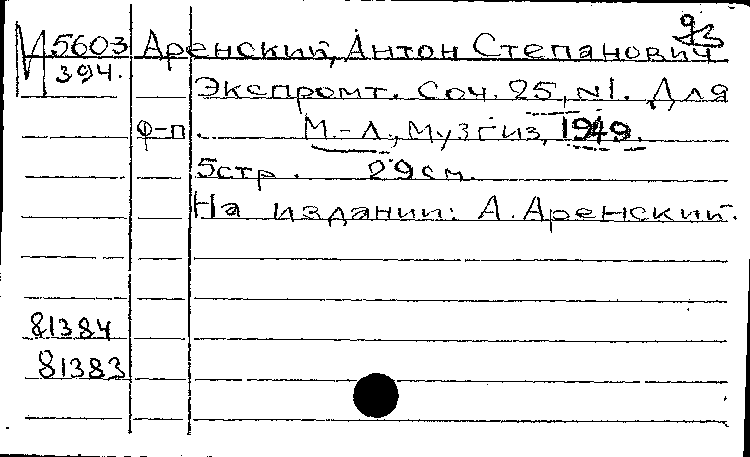 93
М 5603 Аренский, Антон Степанович
394.
Экспромт. Соч. 25, N1. Для
ф-п. М.-Л., Музгиз, 1949.
5стр. 29см.
На издании: А. Аренский.
81384
81383